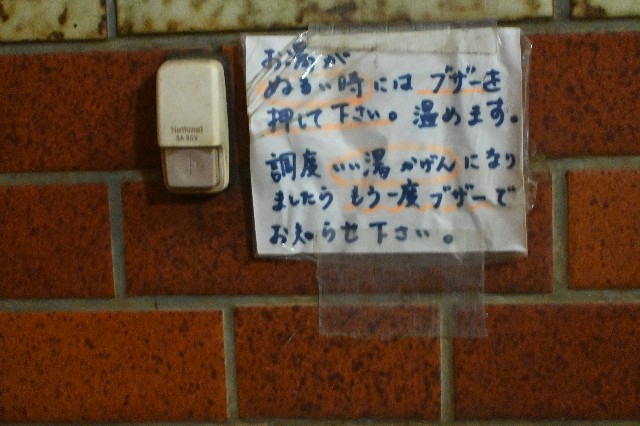 National
お湯が
ぬるい時には ブザーを
押して下さい。温めます。
調度いい湯かげんになり
ましたら もう一度ブザーで
お知らせ下さい。